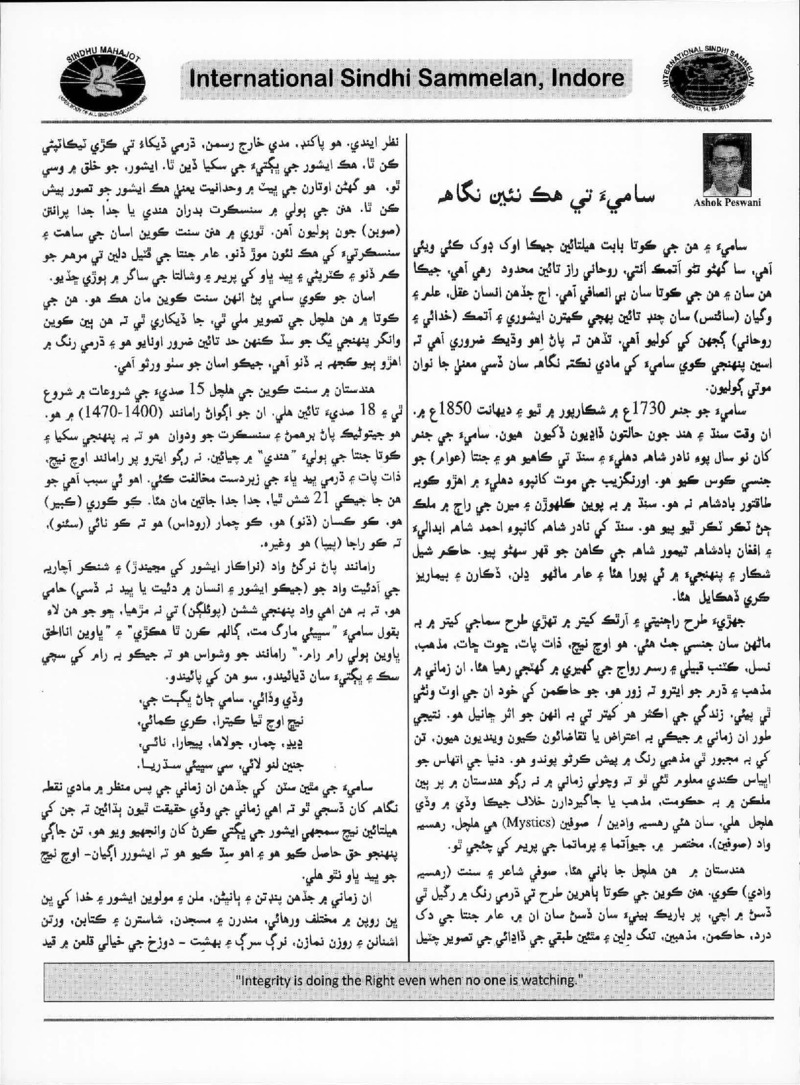 SINDHU MAHAJOT
INTERNATIONAL SINDHI SAMMELAN
International Sindhi Sammelan, Indore
Ashok Peswani
ساميءَ تي هڪ نئين نگاهه
ساميءَ ۽ هن جي ڪوتا بابت هيلتائين جيڪا اوک ڊوک ڪئي ويئي
آهي، سا گهڻو تڻو آتمڪ اُنتي، روحاني راز تائين محدود رهي آهي، جيڪا
هن سان ۽ هن جي ڪوتا سان بي انصافي آهي. اڄ جڏهن انسان عقل، علم ۽
وگيان (سائنس) سان چنڊ تائين پهچي ڪيترن ايشوري ۽ آتمڪ (خدائي ۽
روحاني) ڳجهن کي کوليو آهي. تڏهن تہ پاڻ اِهو وڌيڪ ضروري آهي تہ
اسين پنهنجي ڪوي ساميءَ کي مادي نڪتہ نگاهہ سان ڏسي معنيٰ جا نوان
موتي ڳوليون.
ساميءَ جو جنم 1730ع ۾ شڪارپور ۾ ٿيو ۽ ديهانت 1850ع ۾.
ان وقت سنڌ ۽ هند جون حالتون ڏاڍيون ڏکيون هيون. ساميءَ جي جنم
کان نو سال پوءِ نادر شاهہ دهليءَ ۽ سنڌ تي ڪاهيو هو ۽ جنتا (عوام) جو
جنسي ڪوس ڪيو هو. اورنگزيب جي موت کانپوءِ دهليءَ ۾ اهڙو ڪوبہ
طاقتور بادشاهہ نہ هو. سنڌ ۾ بہ پوين ڪلهوڙن ۽ ميرن جي راڄ ۾ ملڪ
ڄڻ ٽڪر ٽڪر ٿيو پيو هو. سنڌ کي نادر شاهہ کانپوءِ احمد شاهہ ابداليءَ
۽ افغان بادشاهہ تيمور شاهہ جي ڪاهن جو قهر سهڻو پيو. حاڪم شيل
شڪار ۽ پنهنجيءَ ۾ ئي پورا هئا ۽ عام ماڻهو ڍلن، ڏڪارن ۽ بيمارين
ڪري ڏهڪايل هئا.
جهڙيءَ طرح راڄنيتي ۽ آرٿڪ کيتر ۾ تهڙي طرح سماجي کيتر ۾ بہ
ماڻهن سان جنسي جٺ هئي. هو اوچ نيچ، ذات پات، ڇوت ڇات، مذهب،
نسل، ڪٽنب قبيلي ۽ رسم رواج جي گهيري ۾ گهٽجي رهيا هئا. ان زماني ۾
مذهب ۽ ڌرم جو ايترو تہ زور هو، جو حاڪمن کي خود ان جي اوٽ وٺڻي
ٿي پيئي. زندگي جي اڪثر هر کيتر تي بہ انهن جو اثر ڇانيل هو. نتيجي
طور ان زماني ۾ جيڪي بہ اعتراض يا تقاضائون ڪيون وينديون هيون، تن
کي بہ مجبور ٿي مذهبي رنگ ۾ پيش ڪرڻو پوندو هو. دنيا جي اتهاس جو
اڀياس ڪندي معلوم ٿئي ٿو تہ وچولي زماني ۾ نہ رڳو هندستان ۾ پر ٻين
ملڪن ۾ بہ حڪومت، مذهب يا جاگيردارن خلاف جيڪا وڏي ۾ وڏي
هلچل هلي، سان هئي رهسيہ وادين / صوفين (Mystics) هي هلچل، رهسيہ
واد (صوفين)، مختصر ۾، جيوآتما ۽ پرماتما جي پريم کي چئجي ٿو.
هندستان ۾ هن هلچل جا باني هئا، صوفي شاعر ۽ سنت (رهسيہ
وادي) ڪوي. هنن ڪوين جي ڪوتا ٻاهرين طرح تي ڌرمي رنگ ۾ رڱيل ٿي
ڏسڻ ۾ اچي، پر باريڪ بينيءَ سان ڏسڻ سان ان ۾، عام جنتا جي ڏک
درد، حاڪمن، مذهبين، تنگ دلين ۽ مٿئين طبقي جي ڏاڍائي جي تصوير چٽيل
نظر ايندي. هو پاکنڊ، مدي خارج رسمن، ڌرمي ڏيکاءَ تي ڪڙي ٽيڪاٽپڻي
ڪن ٿا، هڪ ايشور جي ڀڳتيءَ جي سکيا ڏين ٿا. ايشور، جو خلق ۾ وسي
ٿو، هو گهڻن اوتارن جي ڀيٽ ۾ وحدانيت يعنيٰ هڪ ايشور جو تصور پيش
ڪن ٿا. هنن جي ٻولي ۾ سنسڪرت بدران هندي يا جدا جدا پرانتن
(صوبن) جون ٻوليون آهن. ٿوري ۾ هنن سنت ڪوين اسان جي ساهت ۽
سنسڪرتيءَ کي هڪ نئون موڙ ڏنو، عام جنتا جي ڦٽيل دلين تي مرهم جو
ڪم ڏنو ۽ ڪٽرپڻي ۽ ڀيد ڀاو کي پريم ۽ وشالتا جي ساگر ۾ ٻوڙي ڇڏيو.
اسان جو ڪوي سامي پڻ انهن سنت ڪوين مان هڪ هو. هن جي
ڪوتا ۾ هن هلچل جي تصوير ملي ٿي، جا ڏيکاري ٿي تہ هن ٻين ڪوين
وانگر پنهنجي يُگ جو سڏ ڪنهن حد تائين ضرور اونايو هو ۽ ڌرمي رنگ ۾
اهڙو ٻيو ڪجهہ بہ ڏنو آهي، جيڪو اسان جو سٺو ورثو آهي.
هندستان ۾ سنت ڪوين جي هلچل 15 صديءَ جي شروعات ۾ شروع
ٿي ۽ 18 صديءَ تائين هلي. ان جو اڳواڻ رامانند (1400-1470) ۾ هو.
هو جيتوڻيڪ پاڻ برهمڻ ۽ سنسڪرت جو ودوان هو تہ بہ پنهنجي سکيا ۽
ڪوتا جنتا جي ٻوليءَ "هندي" ۾ چيائين. نہ رڳو ايترو پر رامانند اوچ نيچ،
ذات پات ۽ ڌرمي ڀيد ڀاءَ جي زبردست مخالفت ڪئي. اهو ئي سبب آهي جو
هن جا جيڪي 21 شش ٿيا، جدا جدا جاتين مان هئا. ڪو ڪوري (ڪبير)
هو، ڪو ڪسان (ڌنو) هو، ڪو چمار (روداس) هو تہ ڪو نائي (سئنو)،
تہ ڪو راجا (پيپا) هو وغيره.
رامانند پاڻ نرگڻ واد (نراڪار ايشور کي مڃيندڙ) ۽ شنڪر آچاريہ
جي آدئيت واد جو (جيڪو ايشور ۽ انسان ۾ دئيت يا ڀيد نہ ڏسي) حامي
هو، تہ بہ هن اهي واد پنهنجي ششن (پوئلڳن) تي نہ مڙهيا، ڇو جو هن لاءِ
بقول ساميءَ "سڀيئي مارگ مت، ڳالهہ ڪرن ٿا هڪڙي" ۽ "ڀاوين اناالحق
ڀاوين ٻولي رام رام." رامانند جو وشواس هو تہ جيڪو بہ رام کي سچي
سڪ ۽ ڀڳتيءَ سان ڌيائيندو، سو هن کي پائيندو.
وڏي وڏائي، سامي ڄاڻ ڀڳت جي،
نيچ اوچ ٿيا ڪيترا، ڪري ڪمائي،
ڍيڍ، چمار، جولاها، پيڃارا، نائي،
جنين لنو لائي، سي سڀيئي سڌريا.
ساميءَ جي مٿين سٽن کي جڏهن ان زماني جي پس منظر ۾ مادي نقطہ
نگاهہ کان ڏسجي ٿو تہ اهي زماني جي وڏي حقيقت ٿيون ٻڌائين تہ جن کي
هيلتائين نيچ سمجهي ايشور جي ڀڳتي ڪرڻ کان وانجهيو ويو هو، تن جاڳي
پنهنجو حق حاصل ڪيو هو ۽ اهو سِڌ ڪيو هو تہ ايشورر اڳيان- اوچ نيچ
جو ڀيد ڀاو نٿو هلي.
ان زماني ۾ جڏهن پنڊتن ۽ ٻانڀڻن، ملن ۽ مولوين ايشور ۽ خدا کي ڀن
ڀن روپن ۾ مختلف ورهائي، مندرن ۽ مسجدن، شاسترن ۽ ڪتابن، ورتن
اشنانن ۽ روزن نمازن، نرڳ سرڳ ۽ بهشت - دوزخ جي خيالي قلعن ۾ قيد
"Integrity is doing the Right even when no one is watching."